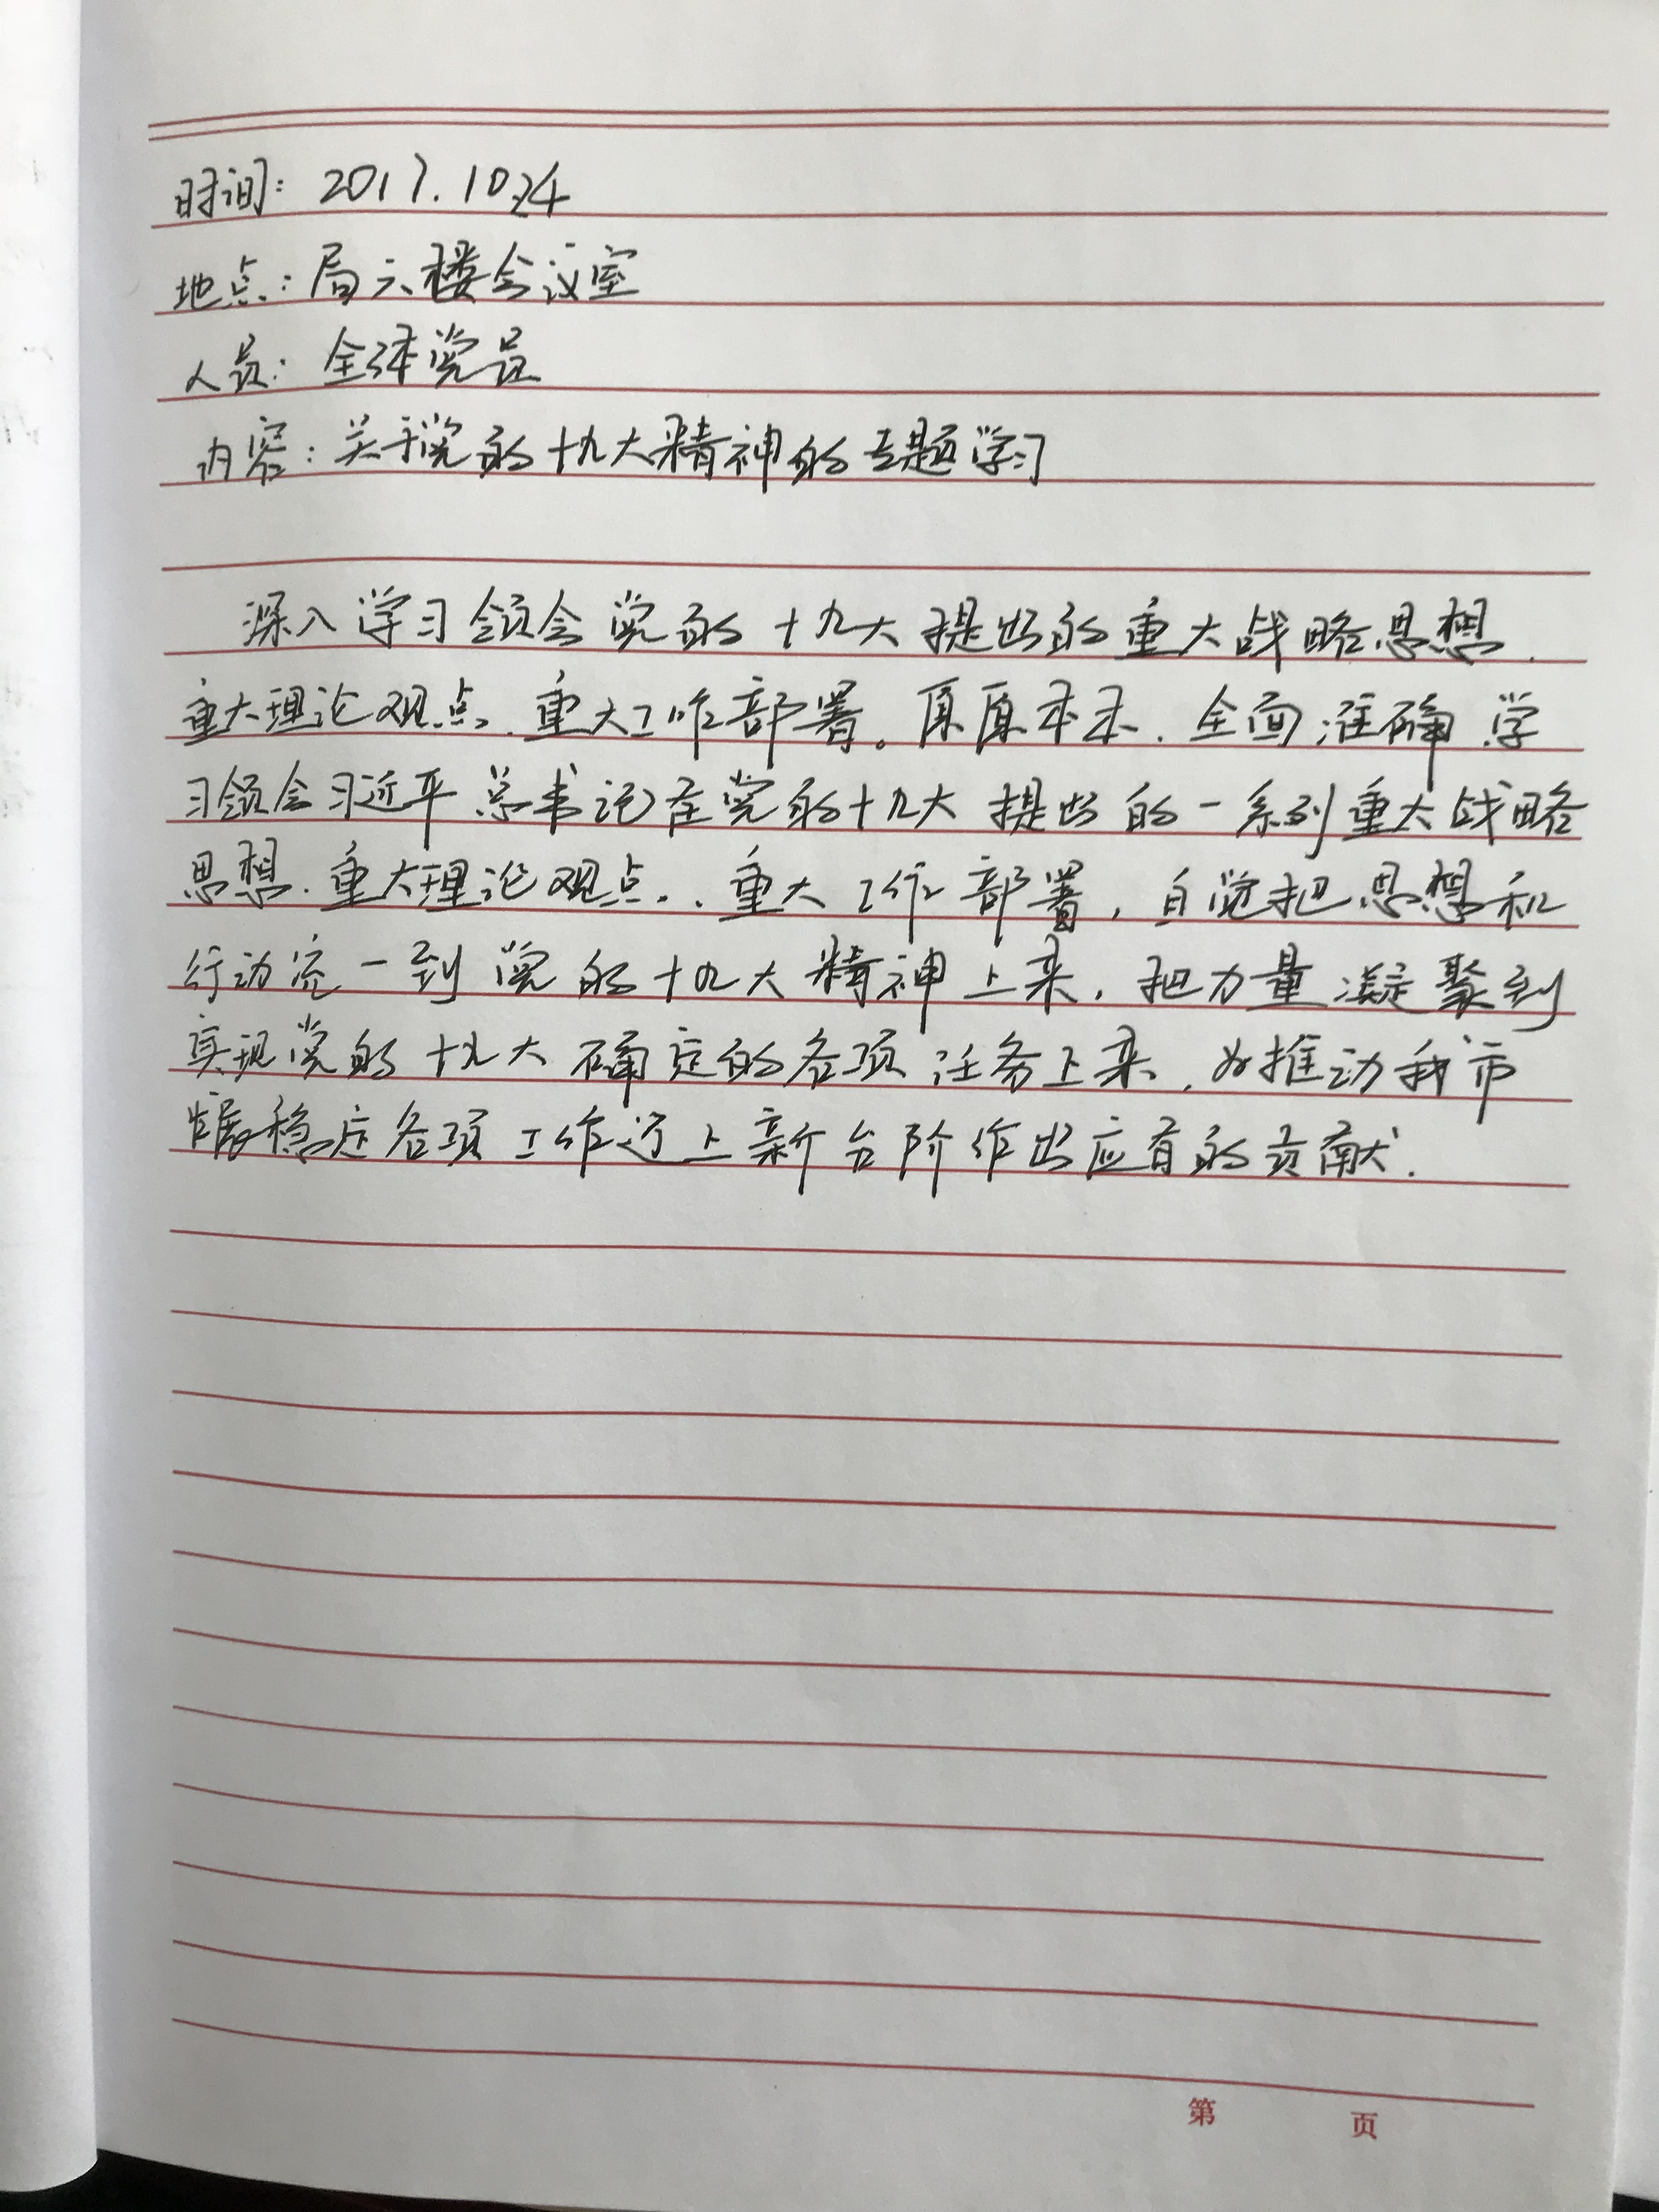 时间：2017.10.24
地点：局六楼会议室
人员：全体党员
内容：关于党的十九大精神的专题学习
深入学习领会党的十九大提出的重大战略思想、
重大理论观点、重大工作部署。原原本本、全面准确学
习领会习近平总书记在党的十九大提出的一系列重大战略
思想、重大理论观点、重大工作部署，自觉把思想和
行动统一到党的十九大精神上来，把力量凝聚到
实现党的十九大确定的各项任务上来，为推动我市
稳定各项工作迈上新台阶作出应有的贡献.
第 页